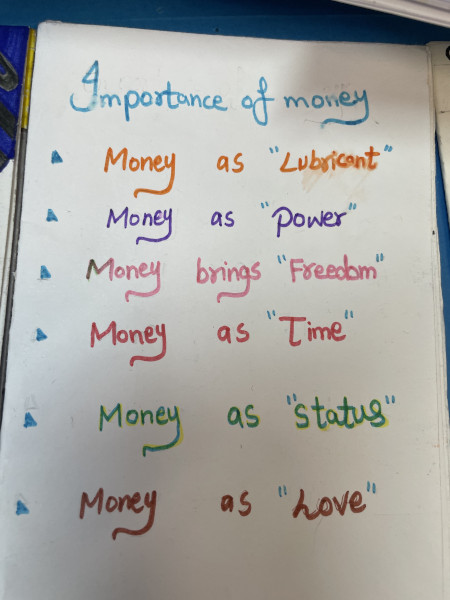 Importance of money
Money as "Lubricant"
Money as "Power"
Money brings "Freedom"
Money as "Time"
Money as "Status"
Money as "Love"